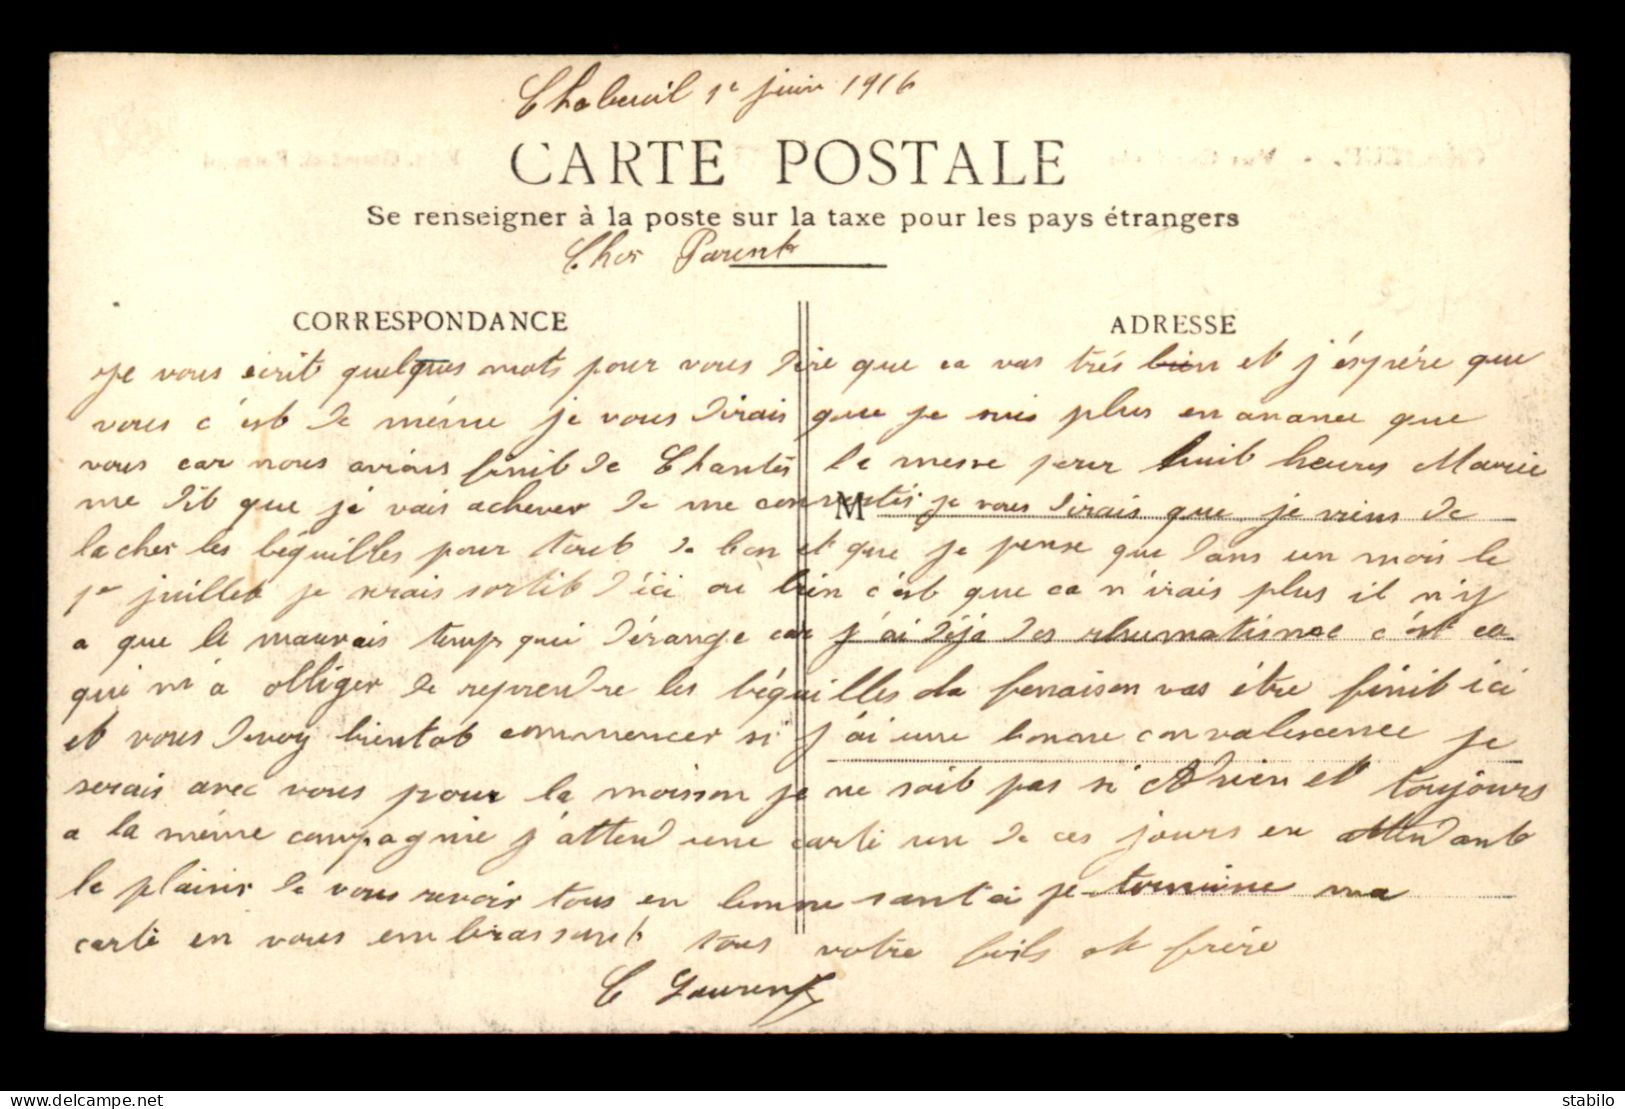 Chabeuil 1e juin 1916
CARTE POSTALE
Se renseigner à la poste sur la taxe pour les pays étrangers
Cher Parent
CORRESPONDANCE
ADRESSE
je vous écrit quelques mots pour vous dire que ca vas très bien et j'éspére que
vous c'est de méme je vous dirais que je suis plus en avance que
vous car nous avions finit de Chantés la messe pour huit heures Marie
me dit que je vais achever de me je vous dirais que je viens de
M
lacher les béquilles pour tout de bon et que je pense que dans un mois le
1er juillet je serais sortit d'ici ou bien c'est que ca n'irais plus il n'y
a que le mauvais temp qui dérange car j'ai déja des rhumatisme c'est ca
qui m'a olliger de reprendre les béquilles la fenaison vas étre finit ici
et vous devoy bientot commencer si j'ai une bonne convalescence je
serais avec vous pour la moisson je ne sait pas si Adrien et toujours
a la méme compagnie j'attend une carte un de ces jours en attendant
le plaisir de vous revoir tous en bonne santé je termine ma
carte en vous embrassant tous votre fils et frére
C Laurent
stabilo